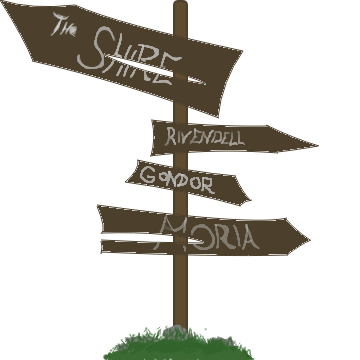 The SHIRE
RIVENDELL
GONDOR
MORIA